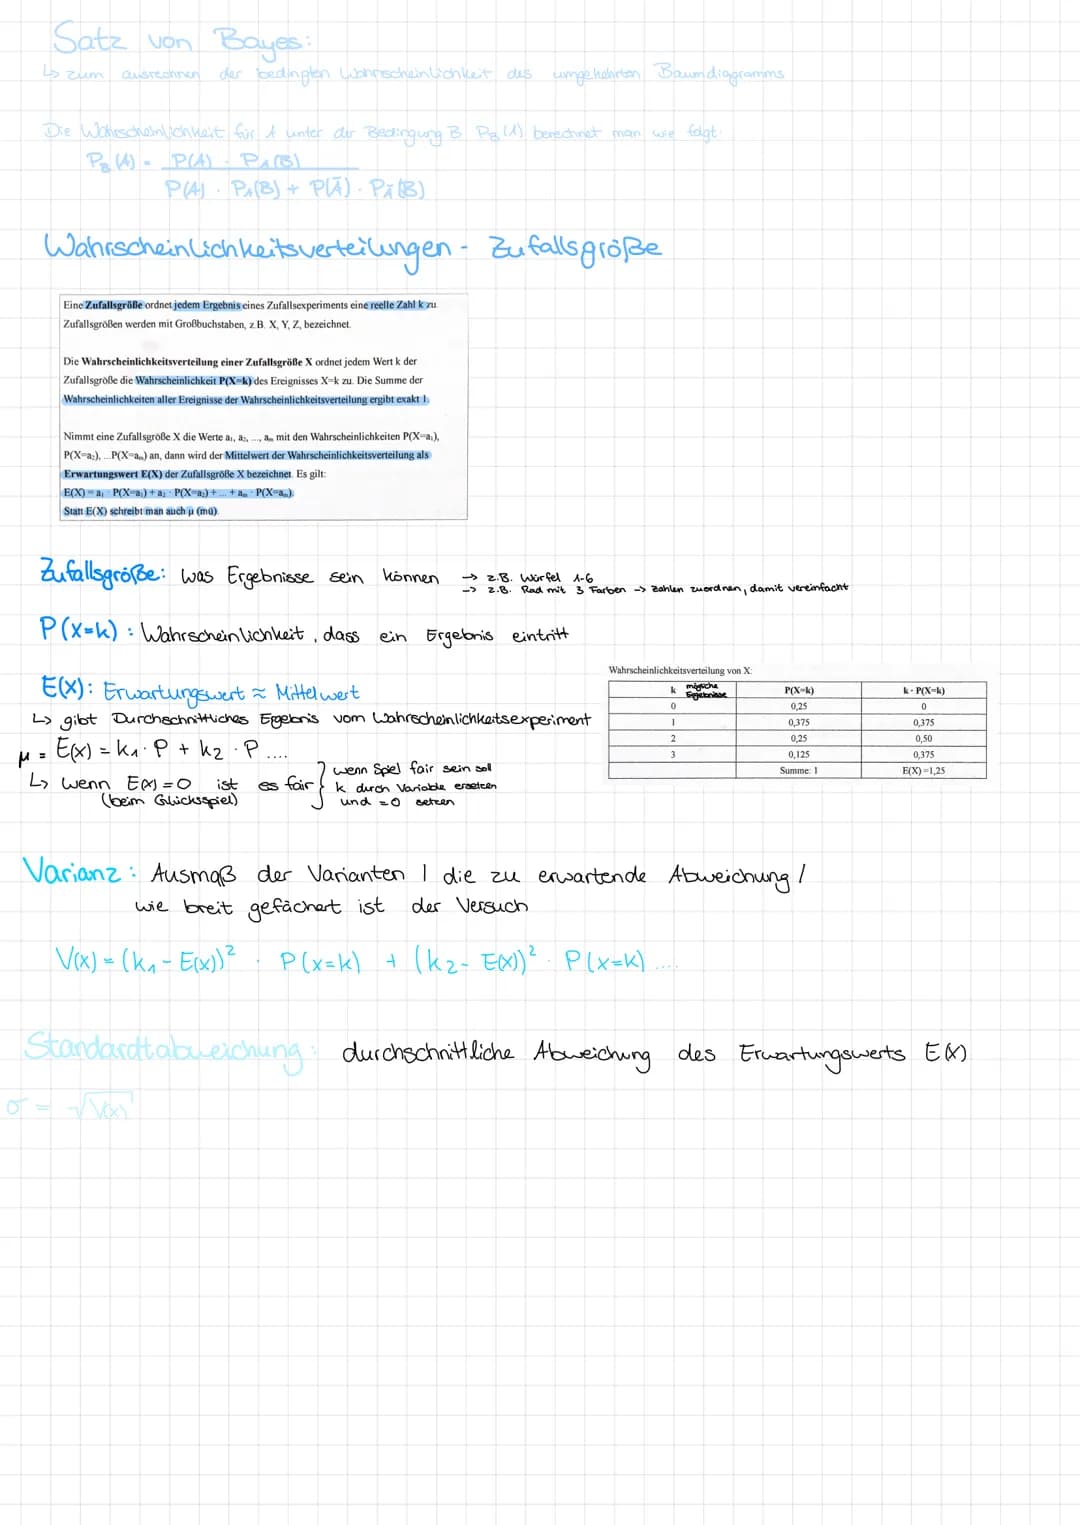 Satz von Bayes:
↳ zum ausrechnen der bedingten Wahrscheinlichkeit des umgekehrten Baumdiagramms
Die Wahrscheinlichkeit für A unter der Bedingung B P_B(A) berechnet man wie folgt:
P_B(A) = P(A) · P_A(B)
P(A) · P_A(B) + P(Ā) · P_Ā(B)
Wahrscheinlichkeitsverteilungen - Zufallsgröße
Eine Zufallsgröße ordnet jedem Ergebnis eines Zufallsexperiments eine reelle Zahl k zu.
Zufallsgrößen werden mit Großbuchstaben, z.B. X, Y, Z, bezeichnet.
Die Wahrscheinlichkeitsverteilung einer Zufallsgröße X ordnet jedem Wert k der
Zufallsgröße die Wahrscheinlichkeit P(X=k) des Ereignisses X=k zu. Die Summe der
Wahrscheinlichkeiten aller Ereignisse der Wahrscheinlichkeitsverteilung ergibt exakt 1.
Nimmt eine Zufallsgröße X die Werte a₁, a₂, ..., aₘ mit den Wahrscheinlichkeiten P(X=a₁),
P(X=a₂), ...P(X=aₘ) an, dann wird der Mittelwert der Wahrscheinlichkeitsverteilung als
Erwartungswert E(X) der Zufallsgröße X bezeichnet. Es gilt:
E(X) = a₁ · P(X=a₁) + a₂ · P(X=a₂) + ... + aₘ · P(X=aₘ).
Statt E(X) schreibt man auch μ (mü).
Zufallsgröße: was Ergebnisse sein können → z.B. Würfel 1-6
→ z.B. Rad mit 3 Farben → Zahlen zuordnen, damit vereinfacht
P(X=k) : Wahrscheinlichkeit, dass ein Ergebnis eintritt
E(X): Erwartungswert ≈ Mittelwert
↳ gibt Durchschnittliches Ergebnis vom Wahrscheinlichkeitsexperiment
μ = E(X) = k₁ · P + k₂ · P ....
↳ wenn E(X) = 0 ist es fair } wenn Spiel fair sein soll
(beim Glücksspiel) k durch Variable ersetzen
und = 0 setzen
Wahrscheinlichkeitsverteilung von X:
k mögliche Ergebnisse P(X=k) k · P(X=k)
0 0,25 0
1 0,375 0,375
2 0,25 0,50
3 0,125 0,375
Summe: 1 E(X) =1,25
Varianz : Ausmaß der Varianten / die zu erwartende Abweichung /
wie breit gefächert ist der Versuch
V(X) = (k₁ - E(X))² · P(X=k) + (k₂ - E(X))² · P(X=k) ....
Standardtabweichung : durchschnittliche Abweichung des Erwartungswerts E(X)
σ = √V(X)